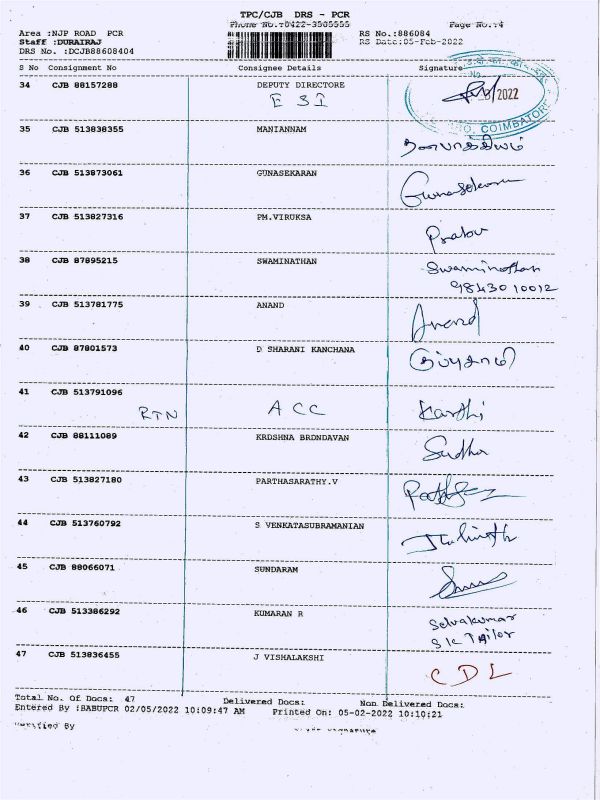 TPC/CJB DRS - PCR
Phone No.:0422-3505555 Page No.:4
Area :NJP ROAD PCR RS No.:886084
Staff :DURAIRAJ RS Date:05-Feb-2022
DRS No. :DCJB88608404
S No Consignment No Consignee Details Signature
34 CJB 88157288 DEPUTY DIRECTORE
E S I 2022
COIMBATORE
35 CJB 513838355 MANIANNAM
36 CJB 513873061 GUNASEKARAN Gunasekaran
37 CJB 513827316 PM.VIRUKSA
38 CJB 87895215 SWAMINATHAN Swaminathan
9843010012
39 CJB 513781775 ANAND Anand
40 CJB 87801573 D SHARANI KANCHANA
41 CJB 513791096
RTN ACC Karthi
42 CJB 88111089 KRDSHNA BRONDAVAN Sudha
43 CJB 513827180 PARTHASARATHY.V
44 CJB 513760792 S VENKATASUBRAMANIAN
45 CJB 88066071 SUNDARAM
46 CJB 513386292 KUMARAN R Selvakumar
SK Tailor
47 CJB 513836455 J VISHALAKSHI CDL
Total No. Of Docs: 47 Delivered Docs: Non Delivered Docs:
Entered By :BABUPCR 02/05/2022 10:09:47 AM Printed On: 05-02-2022 10:10:21
Verified By